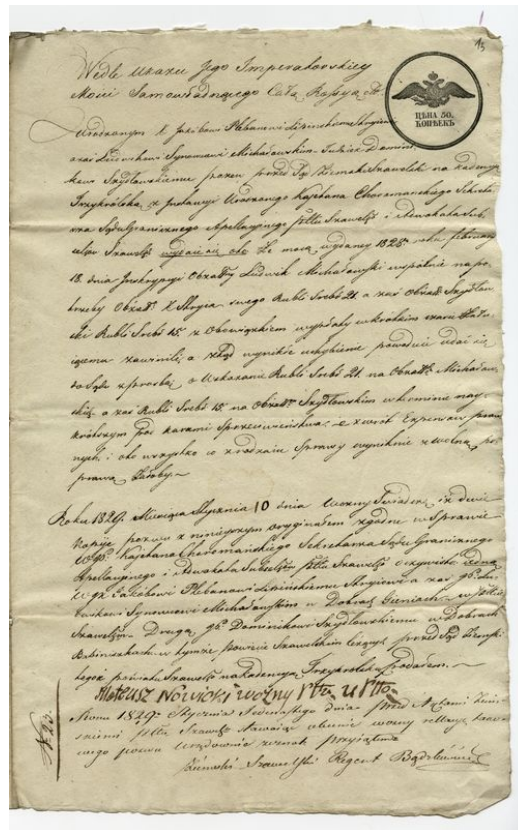 13
Wedle Ukazu Jego Imperatorskiey
Mości Samowładnącego Całą Rossyą
ЦѢНА 50.
КОПѢЕКЪ
Urodzonym X Jakóbowi Plebanowi
oraz Ludwikowi Synowcowi Michałowskim Tudzież Domini
kowi Szydłowskiemu pozew przed Sąd Ziemski Szawelski na kadencyę
Trzykrólską z Instancyi Urodzonego Kajetana Choromańskiego Sekreta
rza Sądu Granicznego Apellacyjnego Pttu Szawels: i Adwokata Sub
Szawels: wydaie się oto że mocą wydaney 1825 roku february
18. dnia Inskrypcyi Obżałły Ludwik Michałowski wspólnie na po
trzeby Obżał: X Stryia swego Rubli Srebr: 21. a zaś Obżał: Szydłow
ski Rubli Srebr: 15. z Obowiązkiem wypłaty w krótkim czasie
zawinili, a ztąd wynikłe uchybienie powodzie udać się
do Sądu z prosbą o Wskazanie Rubli Srebr: 21. na Obżałł: Michałow
skich a zaś Rubli Srebr: 15. na Obżał: Szydłowskim w terminie nay
krótszym pod karami Sprzeciwieństwa, o zwrot Expensow praw
nych i oto wszystko co z rodzaiu Sprawy wyniknie z wolną po
prawą Żałoby.
Roku 1829. Miesiąca Stycznia 10 dnia Woźny Świadczę iż dwie
kopije pozwu z ninieyszym oryginałem zgodne w Sprawie
WJP. Kajetana Choromańskiego Sekretarza Sądu Granicznego
Apellacyinego i Adwokata Pttu Szawels: oczywisto jedną
W JX Jakóbowi Plebanowi Stryiowi a zaś JP. Lu
dwikowi Synowcowi Michałowskim w Dobrach w Pttcie
Szawelskim Drugą JP. Dominikowi Szydłowskiemu w Dobrach
w tymże Powiecie Szawelskim leżących przed Sąd Ziemski
tegoż powiatu Szawels: na kadencyą Trzykrólską podałem.
Mateusz Nowicki woźny Pttu
Roku 1829. Stycznia Jedenastego dnia przed Aktami Ziem
skiemi Pttu Szawels: Stawaiąc obecnie woźny rellacyą
wego pozwu Urzędownie zeznał przyjąłem
Ziemski Szawelski Regent
N 23.